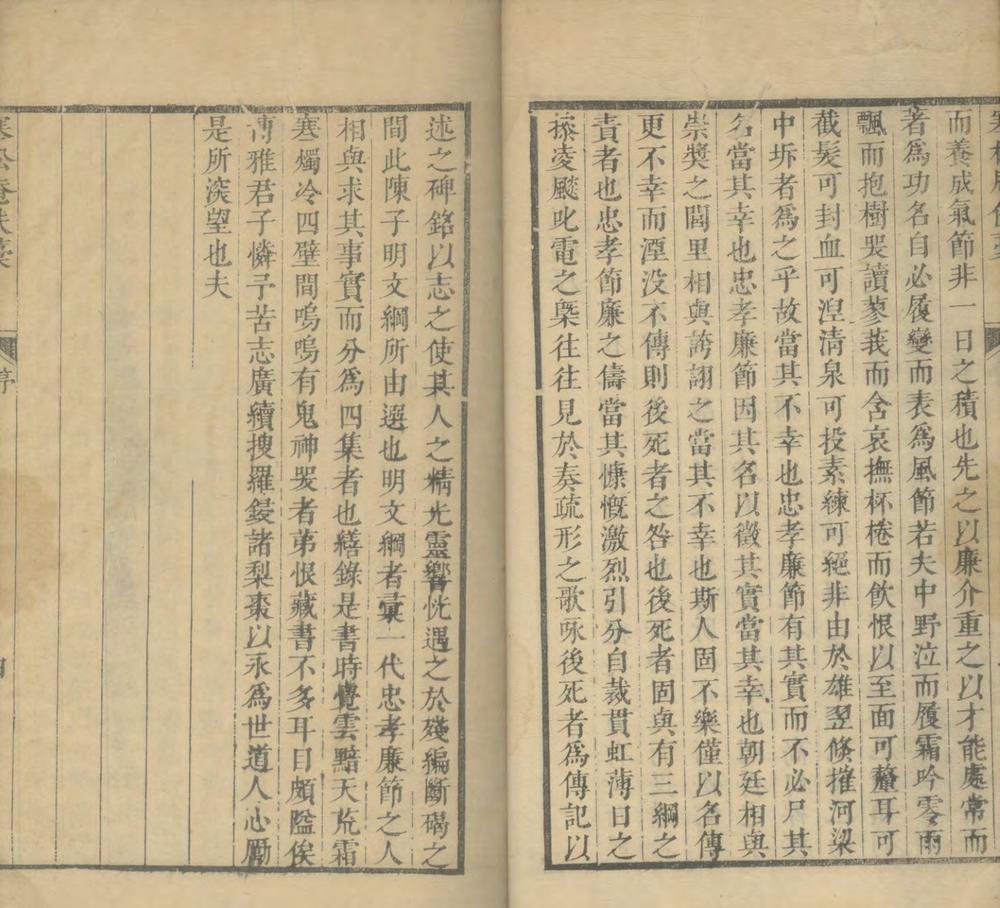 而養成氣節非一日之積也先之以廉介重之以才能處常而
著爲功名自必履變而表爲風節若夫中野泣而履霜吟零雨
飄而抱樹哭讀蓼莪而含哀撫杯棬而飲恨以至面可釐耳可
截髮可封血可湼清泉可投素練可絕非由於雄翌倐摧河梁
中坼者爲之乎故當其不幸也忠孝廉節有其實而不必尸其
名當其幸也忠孝廉節因其名以徵其實當其幸也朝廷相與
崇奬之閭里相與誇詡之當其不幸也斯人固不樂僅以名傳
更不幸而湮没不傳則後死者之咎也後死者固與有三綱之
責者也忠孝節廉之儔當其慷慨激烈引分自裁貫虹薄日之
操凌飈叱電之槩往往見於奏疏形之歌咏後死者爲傳記以
述之碑銘以志之使其人之精光靈響恍遇之於殘編斷碣之
間此陳子明文綱所由選也明文綱者彙一代忠孝廉節之人
相與求其事實而分爲四集者也繕錄是書時覺雲黯天荒霜
寒燭冷四壁間嗚嗚有鬼神哭者苐恨藏書不多耳目頗隘俟
博雅君子憐予苦志廣續搜羅鋟諸梨棗以永爲世道人心勵
是所深望也夫
寒松庵佚稾
序
四